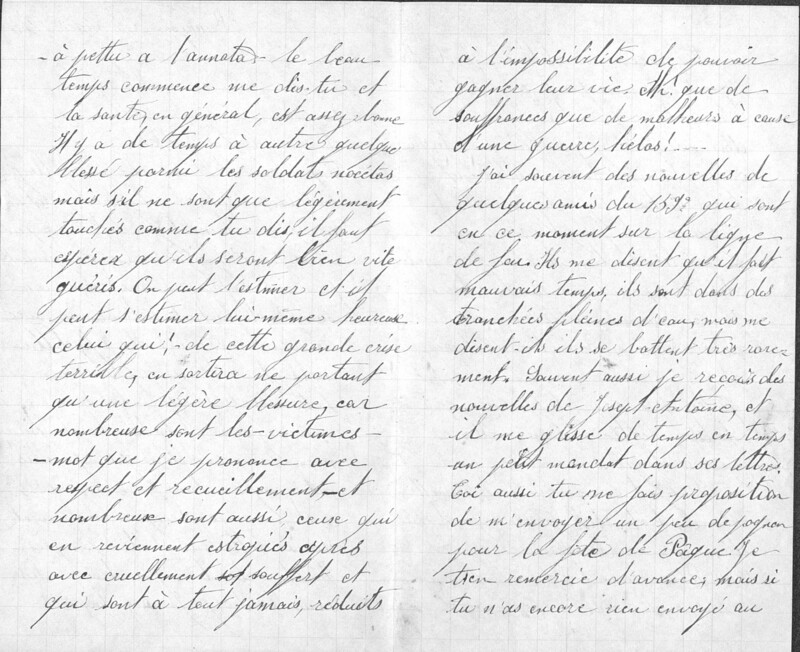 - à pettu a l'annata - le beau
temps commence me dis-tu et
la santé, en général, est assez bonne
Il y a de temps à autre quelque
blessé parmi les soldats nocetas
mais s'il ne sont que légèrement
touchés comme tu dis, il faut
espérer qu'ils seront bien vite
guéris. On peut l'estimer et il
peut s'estimer lui-même heureux
celui qui, - de cette grande crise
terrible, en sortira ne portant
qu'une légère blessure, car
nombreuse sont les - victimes -
- mot que je prononce avec
respect et recueillement - et
nombreux sont aussi ceux qui
en reviennent estropiés après
avoir cruellement souffert et
qui sont à tout jamais, réduits
à l'impossibilité de pouvoir
gagner leur vie. Ah! que de
souffrances que de malheurs à cause
d'une guerre, hélas! ----
J'ai souvent des nouvelles de
quelques amis du 159e qui sont
en ce moment sur la ligne
de feu. Ils me disent qu'il fait
mauvais temps, ils sont dans des
tranchées pleines d'eau, mais me
disent-ils ils se battent très rare-
ment. Souvent aussi je reçois des
nouvelles de Joseph-Antoine, et
il me glisse de temps en temps
un petit mandat dans ses lettres.
Toi aussi tu me fais proposition
de m'envoyer un peu de pognon
pour la fête de Pâque. Je
t'en remercie d'avance, mais si
tu n'as encore rien envoyé au